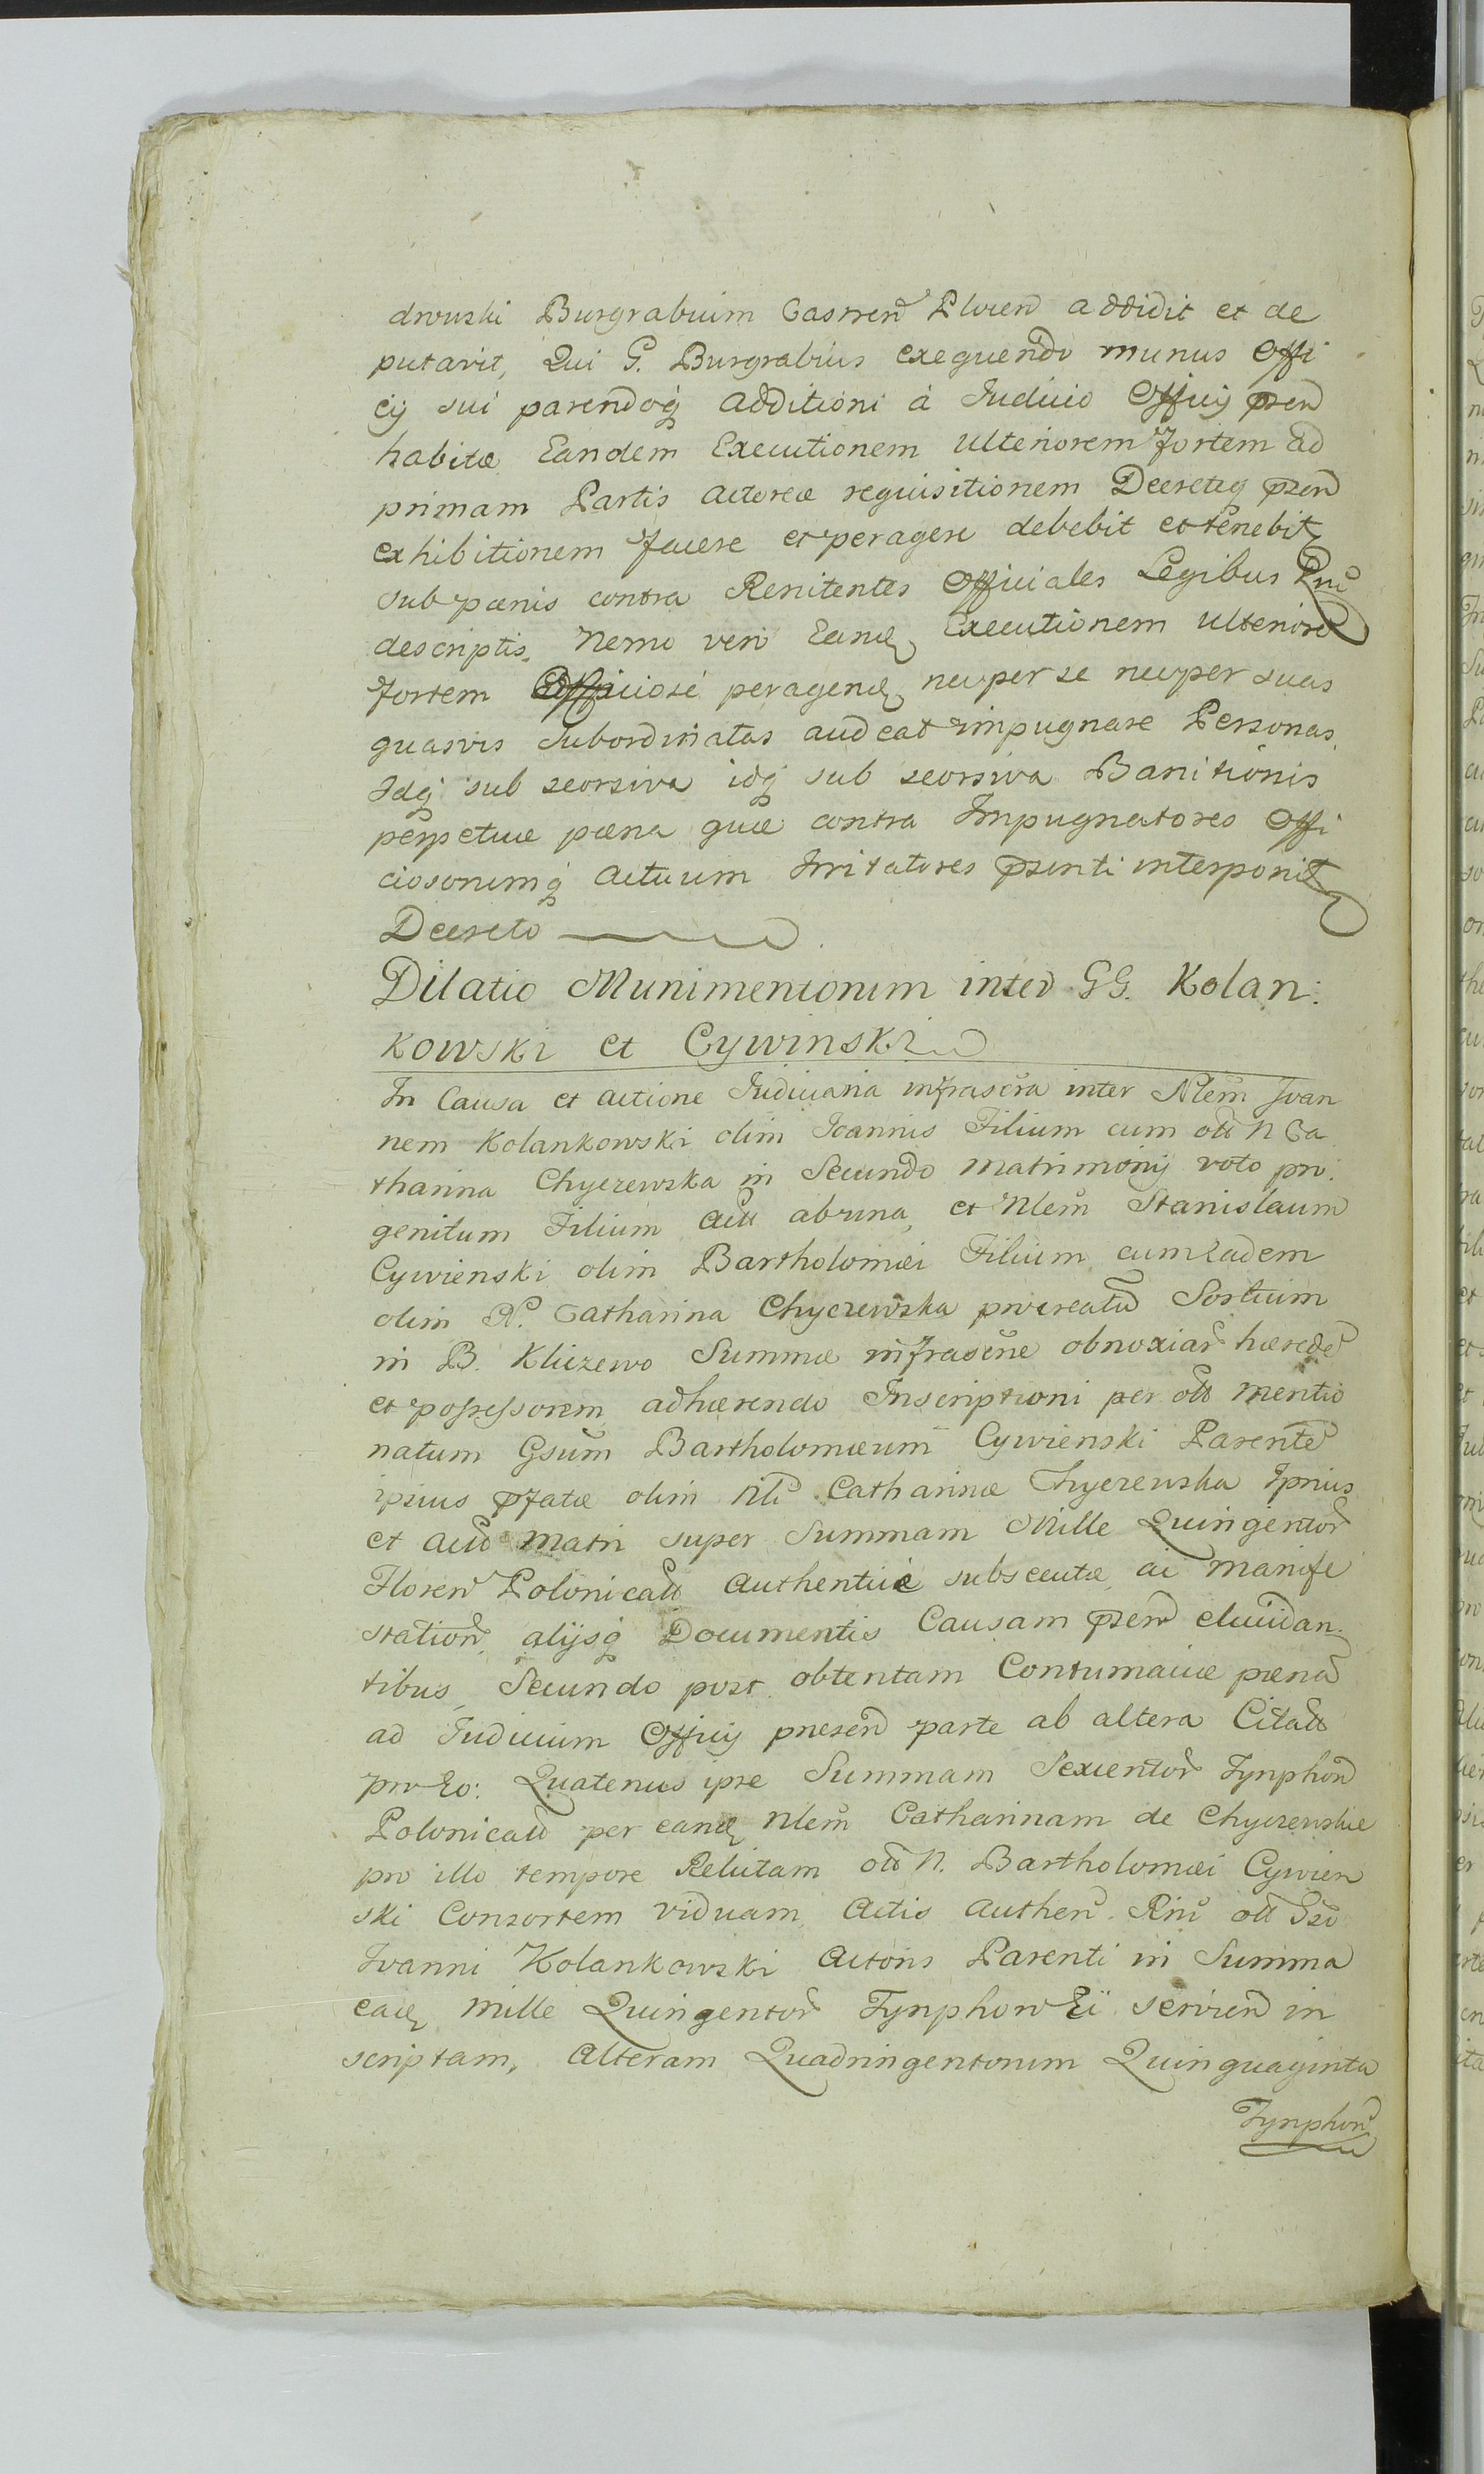 drowski Burgrabium Castren Plocen addidit et de
putavit, Qui G. Burgrabius exequendo munus Offi
cij sui parendoq additioni á Iudicio Officij pren
habitæ Eandem Executionem ulteriorem fortem ad
primam Partis actoreæ requisitionem Decretiq pren
exhibitionem facere et peragere debebit et tenebit
sub pænis contra Renitentes Officiales Legibus Rni
descriptis. Nemo vero Eand Executionem ulterior
fortem Officiosé peragend, nec per se nec per suas
quasvis Subordinatas audeat impugnare Personas
Idq sub seorsiva idq sub seorsiva Banitionis
perpetuæ pæna quæ contra Impugnatores Offi
ciosorumq actuum Irritatores prsenti interponit
Decreto
Dilatio Munimentorum inter GG. Kolan:
kowski et Cywinski
In Causa et actione Iudiciaria infrascra inter Nlem Ioan
nem Kolankowski olim Ioannis Filium cum olim N Ca
tharina Chyczewska in Secundo matrimonij voto pro
genitum Filium act ab una, et Nlem Stanislaum
Cywienski olim Bartholomæi Filium cum Eadem
olim N. Catharina Chyczewska procreatu Sortium
in B. Kliczewo Summæ infrascræ obnoxiar hærede
et possessorem adhærendo Inscriptioni per olim mentio
natum Gsum Bartholomæum Cywienski Parente
ipsius pfatæ olim Nli Catharinæ Chyczewska Ipsius
et act Matri super Summam Mille Quingentor
Floren Polonicall Authenticé subsecutæ, ac manife
station, alijsq Documentis Causam pren elucidan
tibus, Secundo post obtentam Contumaciæ pæna
ad Iudicium Officij presen parte ab altera Citatt
pro Eo: Quatenus ipse Summam Sexcentor Tynphon
Polonicall per eand Nlem Catharinam de Chyczewskie
pro illo tempore Relictam olim N. Bartholomæi Cywien
ski Consortem viduam, Actis Authen. Rni olim Gso
Ioanni Kolankowski Actoris Parenti in Summa
ead Mille Quingentor Tynphon Ei servien in
scriptam, Alteram Quadringentorum Quinquaginta
Tynphon